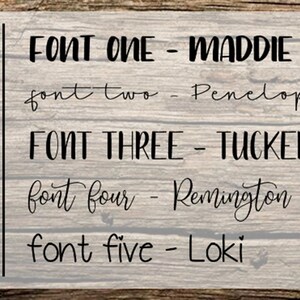 FONT ONE - MADDIE
font two - Penelop
FONT THREE - TUCKE
font four - Remington
font five - Loki